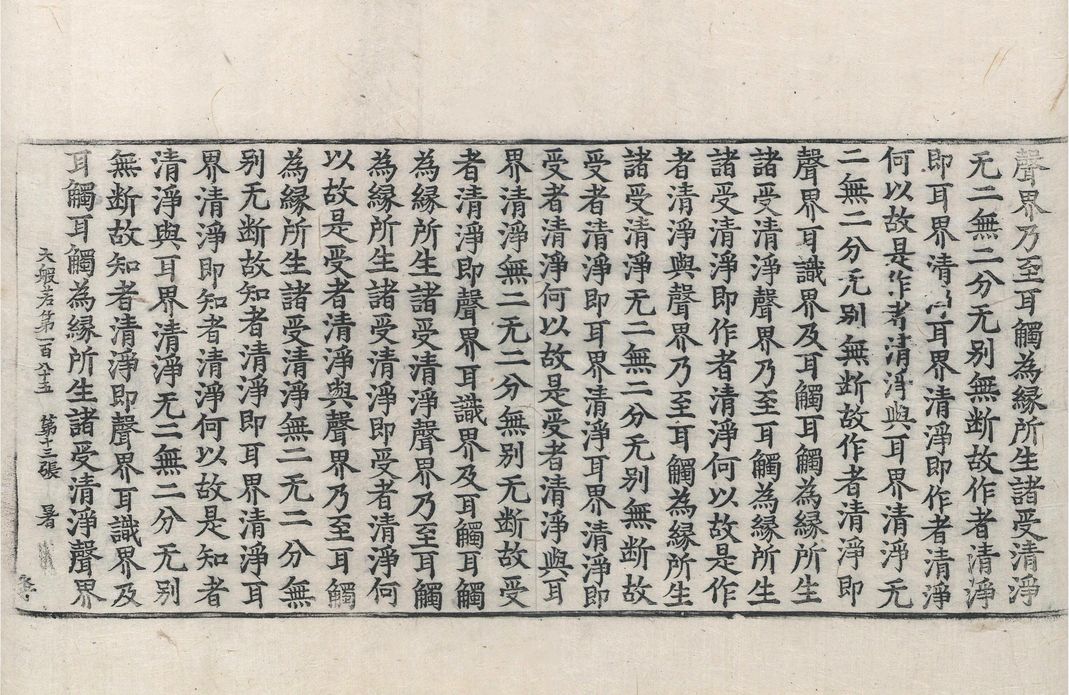 聲界乃至耳觸為縁所生諸受清淨
无二無二分无别無断故作者清淨
即耳界清淨耳界清淨即作者清淨
何以故是作者清淨與耳界清淨无
二無二分无别無断故作者清淨即
聲界耳識界及耳觸耳觸為縁所生
諸受清淨聲界乃至耳觸為縁所生
諸受清淨即作者清淨何以故是作
者清淨與聲界乃至耳觸為縁所生
諸受清淨无二無二分无别無断故
受者清淨即耳界清淨耳界清淨即
受者清淨何以故是受者清淨與耳
界清淨無二无二分無别无断故受
者清淨即聲界耳識界及耳觸耳觸
為縁所生諸受清淨聲界乃至耳觸
為縁所生諸受清淨即受者清淨何
以故是受者清淨與聲界乃至耳觸
為縁所生諸受清淨無二无二分無
别无断故知者清淨即耳界清淨耳
界清淨即知者清淨何以故是知者
清淨與耳界清淨无二無二分无别
無断故知者清淨即聲界耳識界及
耳觸耳觸為縁所生諸受清淨聲界
大般若第一百八十五 第十三張 暑